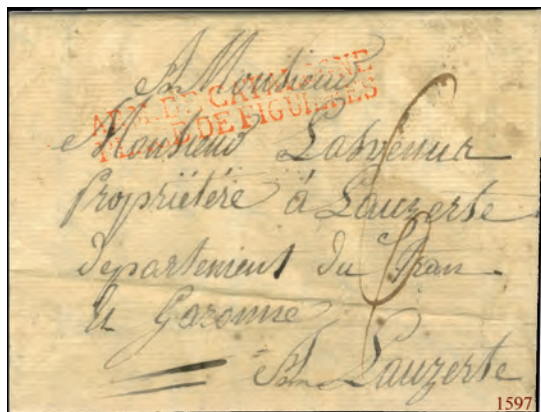 A Monsieur
ARMÉE DE CATALOGNE
PLACE DE FIGUIERES
Monsieur
Propriétére à Lauzerte
departement du
Et Garonne
A Lauzerte
1597